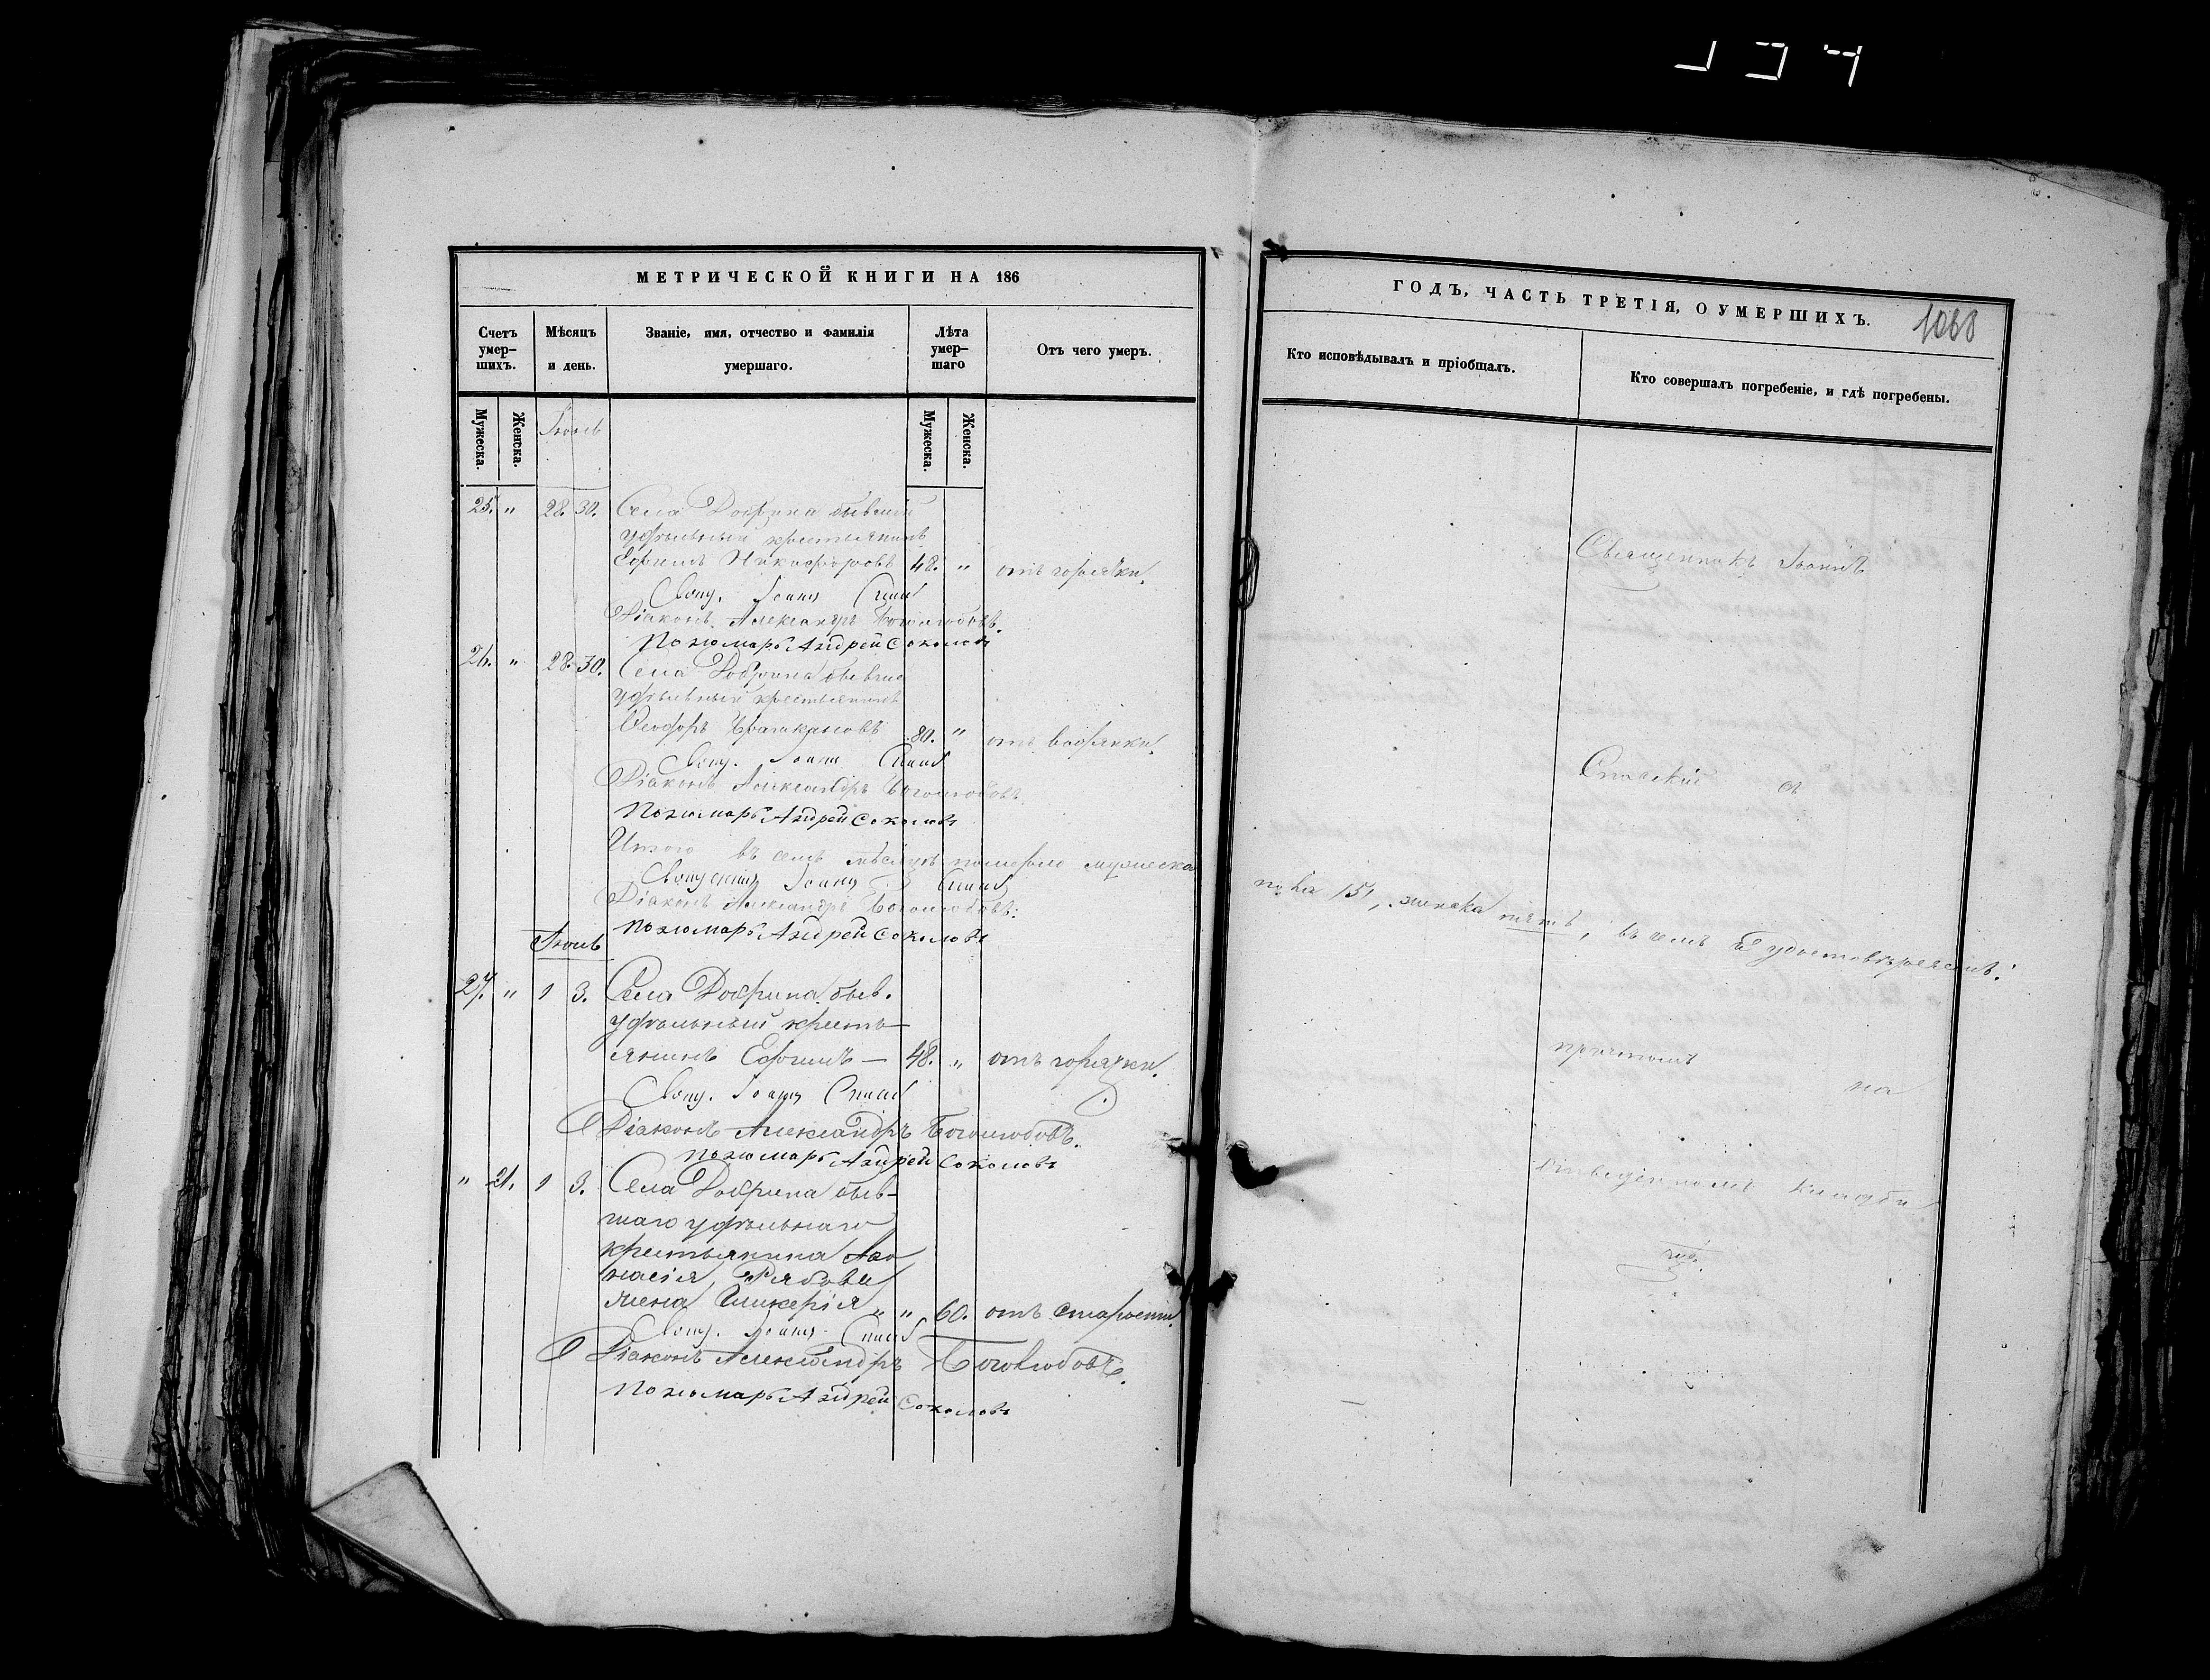 МЕТРИЧЕСКОЙ КНИГИ НА 186
Счетъ умер-шихъ.
Мѣсяцъ и день.
Званіе, имя, отчество и фамилія умершаго.
Лѣта умер-шаго
Отъ чего умеръ.
Мужеска.
Женска.
Мужеска.
Женска.
Іюнь
25. " 28. 30. Села Добрина бывшій
удѣльный крестьянинъ
Ефимъ Никифоровъ 48. " отъ горячки.
Свящ. Іоаннъ
Діаконъ Александръ Боголюбовъ.
Пономарь Андрей Соколовъ
26. " 28. 30. Села Добрина бывшій
удѣльный крестьянинъ
Ѳеодоръ 80. " отъ водянки.
Свящ. Іоаннъ
Діаконъ Александръ Боголюбовъ
Пономарь Андрей Соколовъ
Итого въ семъ мѣсяцѣ померло мужеска
Священникъ Іоаннъ
Діаконъ Александръ Боголюбовъ.
Пономарь Андрей Соколовъ
Іюль
27. " 1 3. Села Добрина быв.
удѣльный кресть-
янинъ Ефимъ — 48. " отъ горячки.
Свящ. Іоаннъ
Діаконъ Александръ Боголюбовъ.
Пономарь Андрей Соколовъ
" 21. 1 3. Села Добрина быв-
шаго удѣльнаго
крестьянина Аѳа
насія Рябова
жена Гликерія " " 60. отъ старости.
Свящ. Іоаннъ
Діаконъ Александръ Боголюбовъ.
Пономарь Андрей Соколовъ
ГОДЪ, ЧАСТЬ ТРЕТІЯ, О УМЕРШИХЪ.
Кто исповѣдывалъ и пріобщалъ.
Кто совершалъ погребеніе, и гдѣ погребены.
Священникъ Іоаннъ
Спасскій съ
пола 15, женска пять, въ чемъ и удостовѣряемъ.
причтомъ
на
кладби
щѣ.